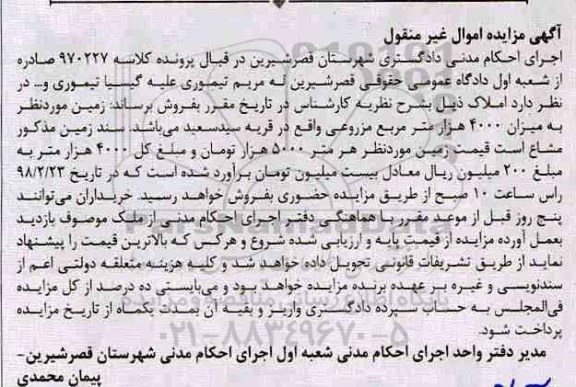 آگهی مزایده اموال غیر منقول
اجرای احکام مدنی دادگستری شهرستان قصرشیرین در قبال پرونده کلاسه ۹۷۰۲۲۷ صادره
از شعبه اول دادگاه عمومی حقوقی قصرشیرین له مریم تیموری علیه گیسیا تیموری و... در
نظر دارد املاک ذیل بشرح نظریه کارشناس در تاریخ مقرر بفروش برساند: زمین موردنظر
به میزان ۴۰۰۰ هزار متر مربع مزروعی واقع در قریه سیدسعید می‌باشد. سند زمین مذکور
مشاع است قیمت زمین موردنظر هر متر ۵۰۰۰ هزار تومان و مبلغ کل ۴۰۰۰ هزار متر به
مبلغ ۲۰۰ میلیون ریال معادل بیست میلیون تومان برآورد شده است که در تاریخ ۹۸/۲/۲۳
راس ساعت ۱۰ صبح از طریق مزایده حضوری بفروش خواهد رسید. خریداران می‌توانند
پنج روز قبل از موعد مقرر با هماهنگی دفتر اجرای احکام مدنی از ملک موصوف بازدید
بعمل آورده مزایده از قیمت پایه و ارزیابی شده شروع و هرکس که بالاترین قیمت را پیشنهاد
نماید از طریق تشریفات قانونی تحویل داده خواهد شد و کلیه هزینه متعلقه دولتی اعم از
سندنویسی و غیره بر عهده برنده مزایده خواهد بود و می‌بایستی ده درصد از کل مزایده
فی‌المجلس به حساب سپرده دادگستری واریز و بقیه آن بمدت یکماه از تاریخ مزایده
پرداخت شود.
مدیر دفتر واحد اجرای احکام مدنی شعبه اول اجرای احکام مدنی شهرستان قصرشیرین-
پیمان محمدی
ParsNamadData
پایگاه اطلاع رسانی مناقصه و مزایده
۰۲۱-۸۸۳۴۹۶۷۰-۵